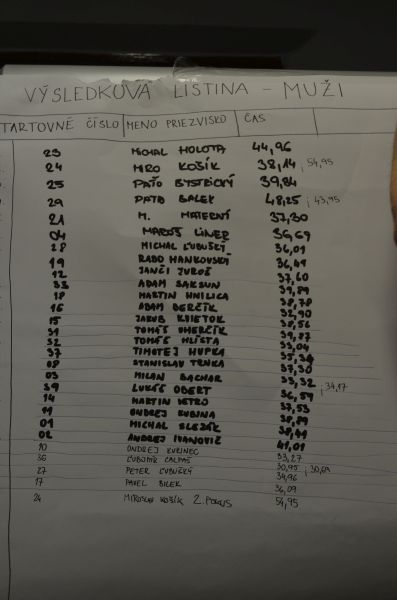 VÝSLEDKOVÁ LISTINA - MUŽI
ŠTARTOVNÉ ČÍSLO MENO PRIEZVISKO ČAS
23 MICHAL HOLOTA 44,96
24 MIRO KOŠÍK 38,14 ; 54,95
25 PAŤO BYSTRICKÝ 39,84
29 PAŤO BALEK 48,25 ; 43,95
21 M. MATERNÝ 37,30
04 MAROŠ LINER 36,69
28 MICHAL ĽUBUŠKÝ 36,01
19 RADO HANKOVSKÝ 36,49
12 JANČI JUROŠ 37,60
33 ADAM SAKSUN 39,89
18 MARTIN HNILICA 38,78
16 ADAM BERČÍK 32,90
15 JAKUB 38,56
31 TOMÁŠ UHERČÍK 39,87
32 TOMÁŠ HLÍSTA 33,04
37 TIMOTEJ HUPKA 35,34
08 STANISLAV TRNKA 37,30
03 MILAN BACHAR 33,32 ; 34,17
39 LUKÁŠ OBERT 36,59
14 MARTIN PETRO 37,53
11 ONDREJ KUBINA 38,89
01 MICHAL SLEZÁK 38,49
02 ANDREJ IVANOVIČ 41,01
10 ONDREJ KURINEC 33,27
36 ĽUBOMÍR 30,95 ; 30,69
27 PETER ĽUBUŠKÝ 34,96
17 PAVEL BILEK 36,09
24 MIROSLAV KOŠÍK 2. POKUS 54,95